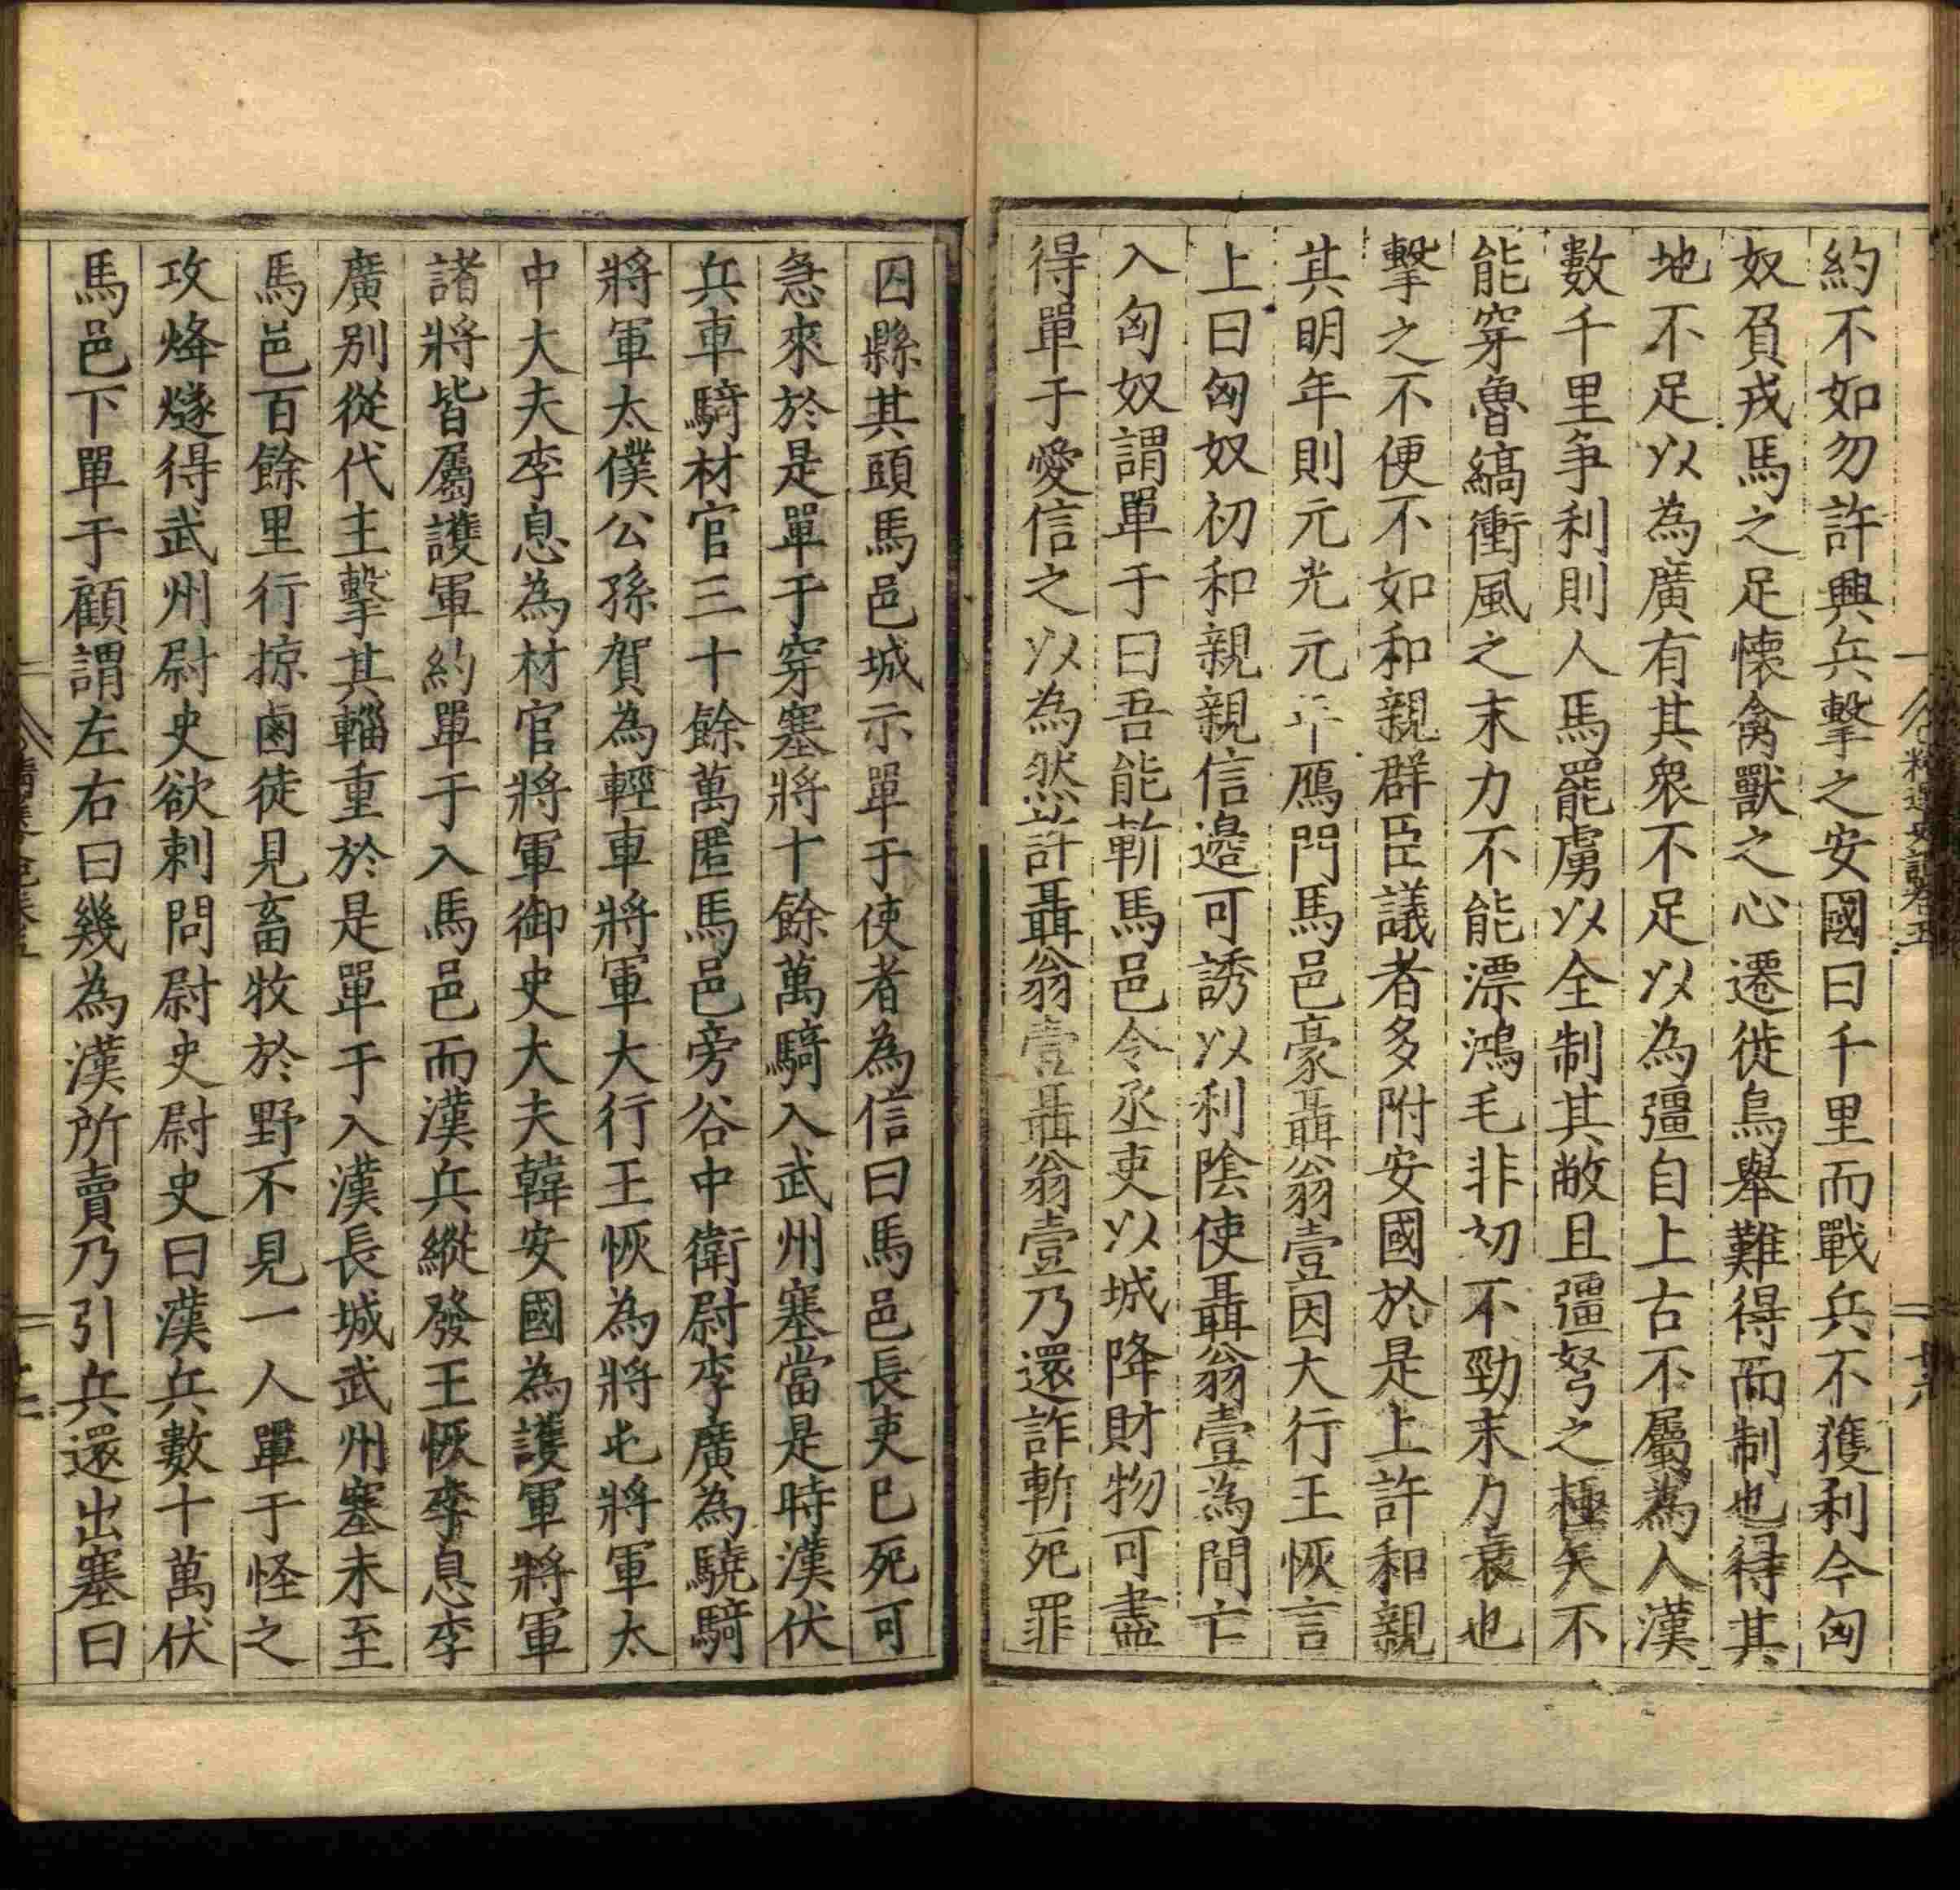 約不如勿許興兵擊之安國曰千里而戰兵不獲利今匈
奴負戎馬之足懐禽獸之心遷徙鳥舉難得而制也得其
地不足以為廣有其衆不足以為彊自上古不屬為人漢
數千里争利則人馬罷虜以全制其敝且彊弩之極矢不
能穿魯縞衝風之末力不能漂鴻毛非初不勁末力衰也
擊之不便不如和親群臣議者多附安國於是上許和親
其明年則元光元年鴈門馬邑豪聶翁壹因大行王恢言
上曰匈奴初和親親信邊可誘以利陰使聶翁壹為間亡
入匈奴謂單于曰吾能斬馬邑令丞吏以城降財物可盡
得單于愛信之以為然許聶翁壹聶翁壹乃還詐斬死罪
囚縣其頭馬邑城示單于使者為信曰馬邑長吏已死可
急來於是單于穿塞將十餘萬騎入武州塞當是時漢伏
兵車騎材官三十餘萬匿馬邑旁谷中衛尉李廣為驍騎
將軍太僕公孫賀為輕車將軍大行王恢為將屯將軍太
中大夫李息為材官將軍御史大夫韓安國為護軍將軍
諸將皆屬護軍約單于入馬邑而漢兵縱發王恢李息李
廣別從代主擊其輜重於是單于入漢長城武州塞未至
馬邑百餘里行掠鹵徒見畜牧於野不見一人單于怪之
攻烽燧得武州尉史欲刺問尉史尉史曰漢兵數十萬伏
馬邑下單于顧謂左右曰幾為漢所賣乃引兵還出塞曰